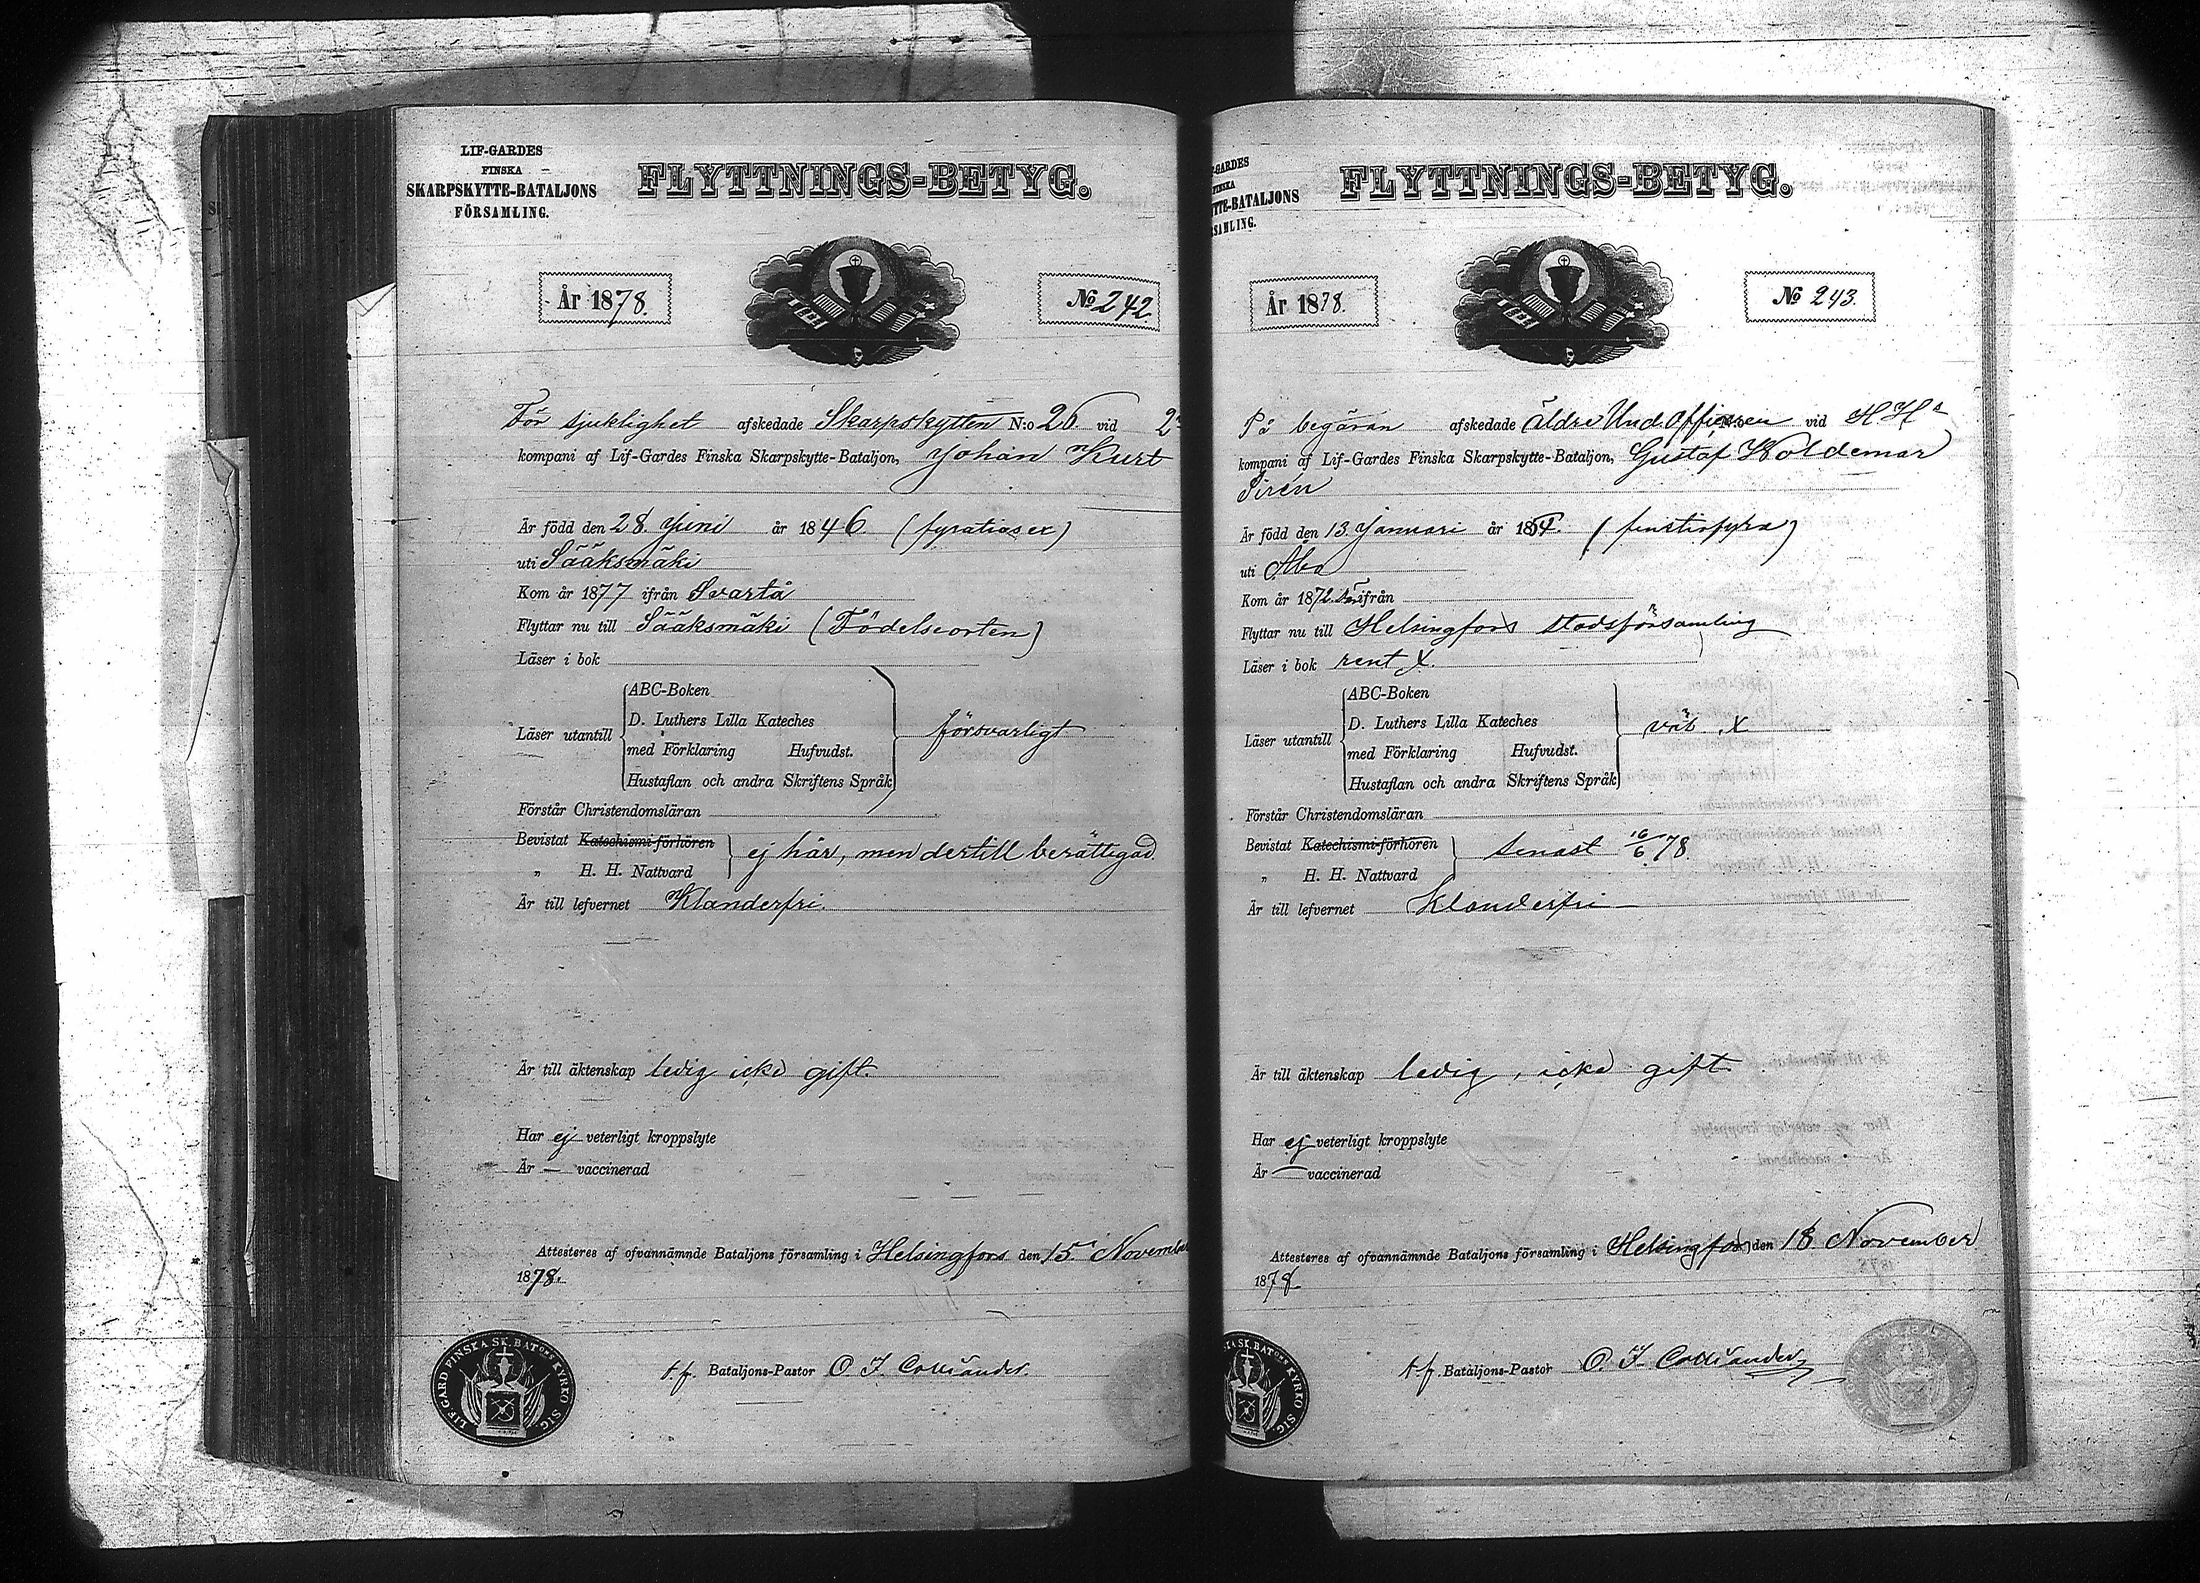 LIF-GARDES
FINSKA
SKARPSKYTTE-BATALJONS
FÖRSAMLING.
FLYTTNINGS-BETYG.
År 1878.
No 242
För sjuklighet afskedade Skarpskytten N:o 26 vid 2a
kompani af Lif-Gardes Finska Skarpskytte-Bataljon, Johan Kurt
Är född den 28. Juni år 1846 (fyratiosex)
uti Sääksmäki
Kom år 1877 ifrån Svartå
Flyttar nu till Sääksmäki (Födelseorten)
Läser i bok
Läser utantill
ABC-Boken
D. Luthers Lilla Kateches
med Förklaring Hufvudst.
Hustaflan och andra Skriftens Språk
försvarligt
Förstår Christendomsläran
Bevistat Katechismi-förhören
„ H. H. Nattvard
ej här, men dertill berättigad.
Är till lefvernet Klanderfri.
Är till äktenskap ledig icke gift.
Har ej veterligt kroppslyte
Är — vaccinerad
Attesteras af ofvannämnde Bataljons församling i Helsingfors den 15 November
1878.
t.f. Bataljons-Pastor O. F. Colliander.
LIF:GARD FINSKA SK BATONS KYRKO SIG.
GARDES
FINSKA
TTE-BATALJONS
SAMLING.
FLYTTNINGS-BETYG.
År 1878.
No 243.
På begäran afskedade äldre Und.officeren vid
kompani af Lif-Gardes Finska Skarpskytte-Bataljon, Gustaf Woldemar
Siren
Är född den 13. Januari år 1854. (femtiofyra)
uti Åbo
Kom år 1872 ifrån
Flyttar nu till Helsingfors stadsförsamling
Läser i bok rent X.
Läser utantill
ABC-Boken
D. Luthers Lilla Kateches
med Förklaring Hufvudst.
Hustaflan och andra Skriftens Språk
X
Förstår Christendomsläran
Bevistat Katechismi-förhören
„ H. H. Nattvard
senast 16/6 78.
Är till lefvernet Klanderfri
Är till äktenskap ledig, icke gift.
Har ej veterligt kroppslyte
Är — vaccinerad
Attesteres af ofvannämnde Bataljons församling i Helsingfors den 18 November
1878.
t.f. Bataljons-Pastor O. F. Colliander
SK BATONS KYRKO SIG.